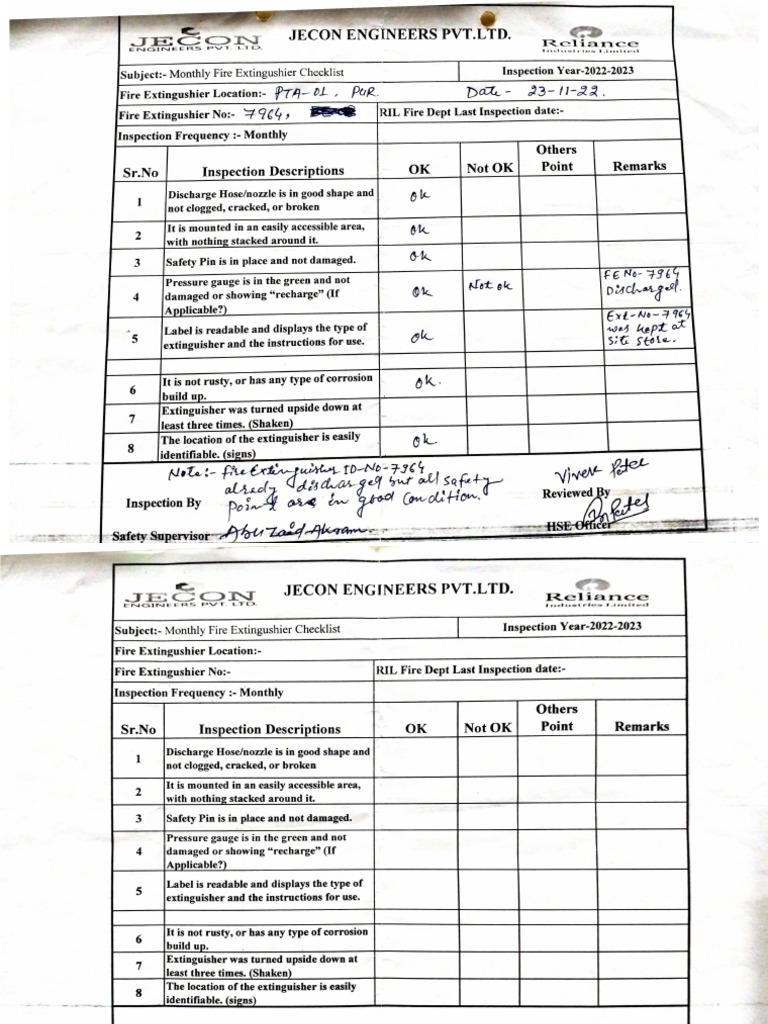 JECON
ENGINEERS PVT. LTD.
JECON ENGINEERS PVT.LTD.
Reliance
Industries Limited
Subject:- Monthly Fire Extingushier Checklist
Inspection Year-2022-2023
Fire Extingushier Location:- PTA-01, PUR
Date - 23-11-22.
Fire Extingushier No:- 7964,
RIL Fire Dept Last Inspection date:-
Inspection Frequency :- Monthly
Sr.No Inspection Descriptions OK Not OK Others Point Remarks
1 Discharge Hose/nozzle is in good shape and not clogged, cracked, or broken ok
2 It is mounted in an easily accessible area, with nothing stacked around it. ok
3 Safety Pin is in place and not damaged. ok
4 Pressure gauge is in the green and not damaged or showing “recharge” (If Applicable?) ok Not ok FE No-7964 Discharged.
5 Label is readable and displays the type of extinguisher and the instructions for use. ok Ext-No-7964 was kept at site store.
6 It is not rusty, or has any type of corrosion build up. ok.
7 Extinguisher was turned upside down at least three times. (Shaken)
8 The location of the extinguisher is easily identifiable. (signs) ok
Note:- fire Extinguisher ID-No-7964
alredy discharged but all safety
point are in good condition.
Inspection By
Vivek Patel
Reviewed By
Safety Supervisor Abu Zaid Akram.
HSE Officer
JECON
ENGINEERS PVT. LTD.
JECON ENGINEERS PVT.LTD.
Reliance
Industries Limited
Subject:- Monthly Fire Extingushier Checklist
Inspection Year-2022-2023
Fire Extingushier Location:-
Fire Extingushier No:-
RIL Fire Dept Last Inspection date:-
Inspection Frequency :- Monthly
Sr.No Inspection Descriptions OK Not OK Others Point Remarks
1 Discharge Hose/nozzle is in good shape and not clogged, cracked, or broken
2 It is mounted in an easily accessible area, with nothing stacked around it.
3 Safety Pin is in place and not damaged.
4 Pressure gauge is in the green and not damaged or showing “recharge” (If Applicable?)
5 Label is readable and displays the type of extinguisher and the instructions for use.
6 It is not rusty, or has any type of corrosion build up.
7 Extinguisher was turned upside down at least three times. (Shaken)
8 The location of the extinguisher is easily identifiable. (signs)